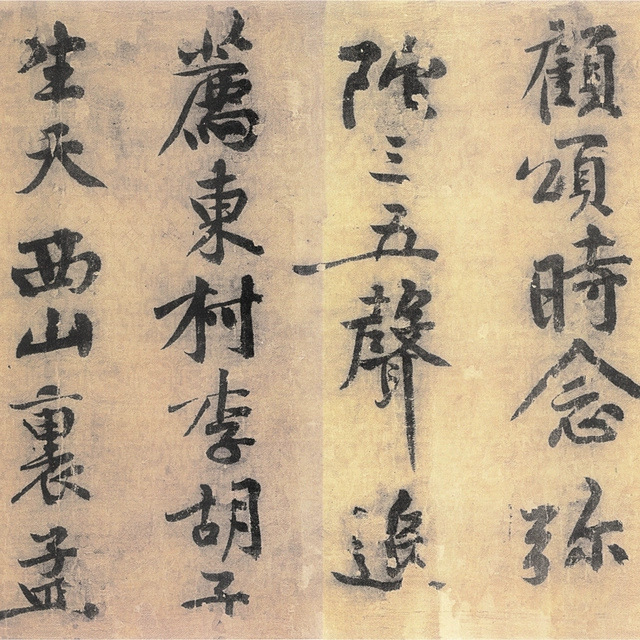 顧頌時念弥
陁三五聲追
薦東村李胡子
生天西山裏孟